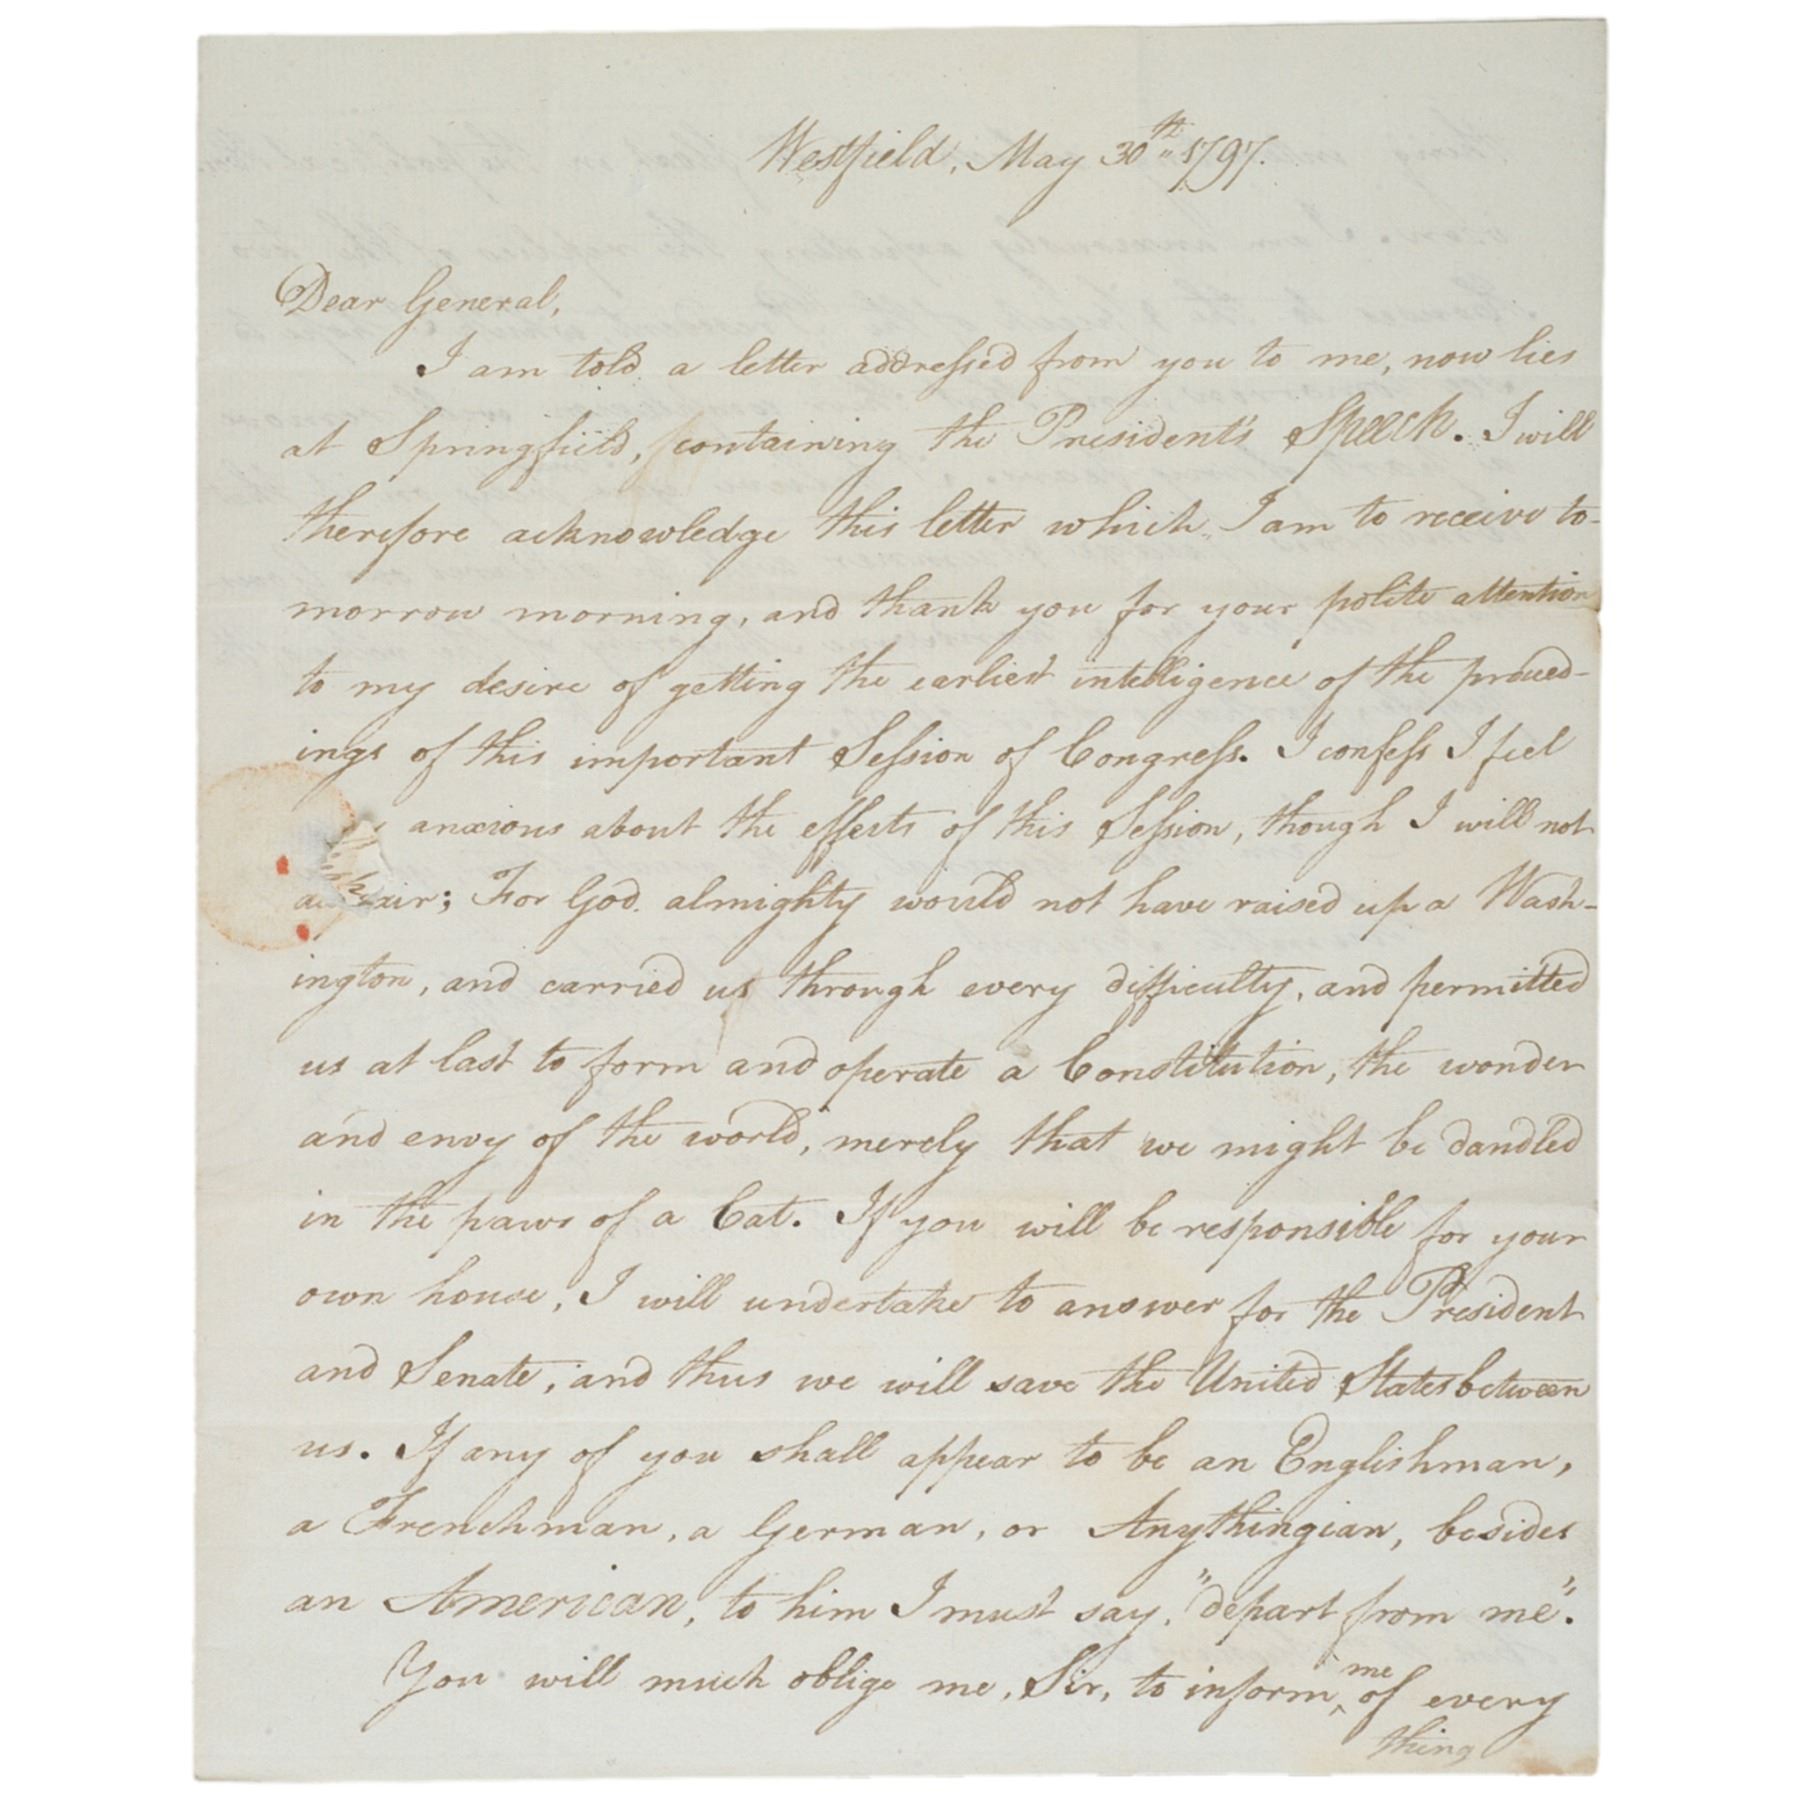 Westfield, May 30th 1797.
Dear General,
I am told a letter addressed from you to me, now lies
at Springfield, containing the President's Speech. I will
therefore acknowledge this letter which I am to receive to-
morrow morning, and thank you for your polite attention
to my desire of getting the earliest intelligence of the proceed-
ings of this important Session of Congress. I confess I feel
anxious about the effects of this Session, though I will not
; For God almighty would not have raised up a Wash-
ington, and carried us through every difficulty, and permitted
us at last to form and operate a Constitution, the wonder
and envy of the world, merely that we might be dandled
in the paws of a Cat. If you will be responsible for your
own house, I will undertake to answer for the President
and Senate, and thus we will save the United States between
us. If any of you shall appear to be an Englishman,
a Frenchman, a German, or Anythingian, besides
an American, to him I must say, "depart from me".
You will much oblige me, Sir, to inform me of every
thing